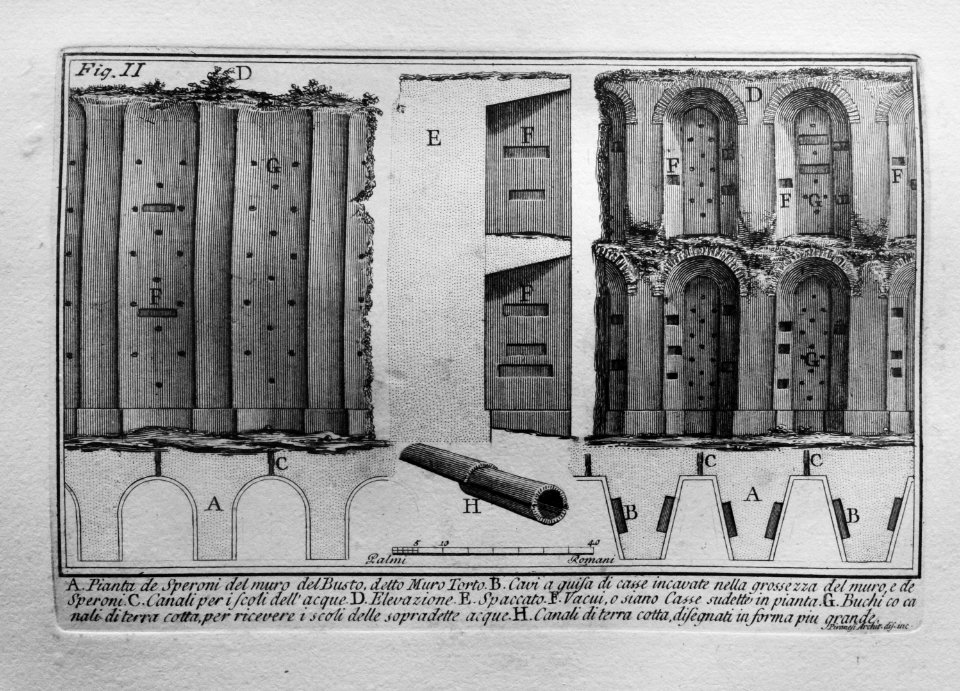 Fig. II
D
D
E
F
G
F
F
G
F
F
F
F
G
C
C
C
A
H
B
A
B
5 10 40
Palmi Romani
A. Pianta de Speroni del muro del Busto, dotto Muro Torto. B. Cavi a guisa di casse incavate nella grossezza del muro, e de
Speroni. C. Canali per i scoli dell' acque. D. Elevazione. E. Spaccato. F. Vacui, o siano Casse sudette in pianta. G. Buchi co ca
nali di terra cotta, per ricevere i scoli delle sopradette acque. H. Canali di terra cotta, disegnati in forma piu grande.
Piranesi Archit. dis. inc.